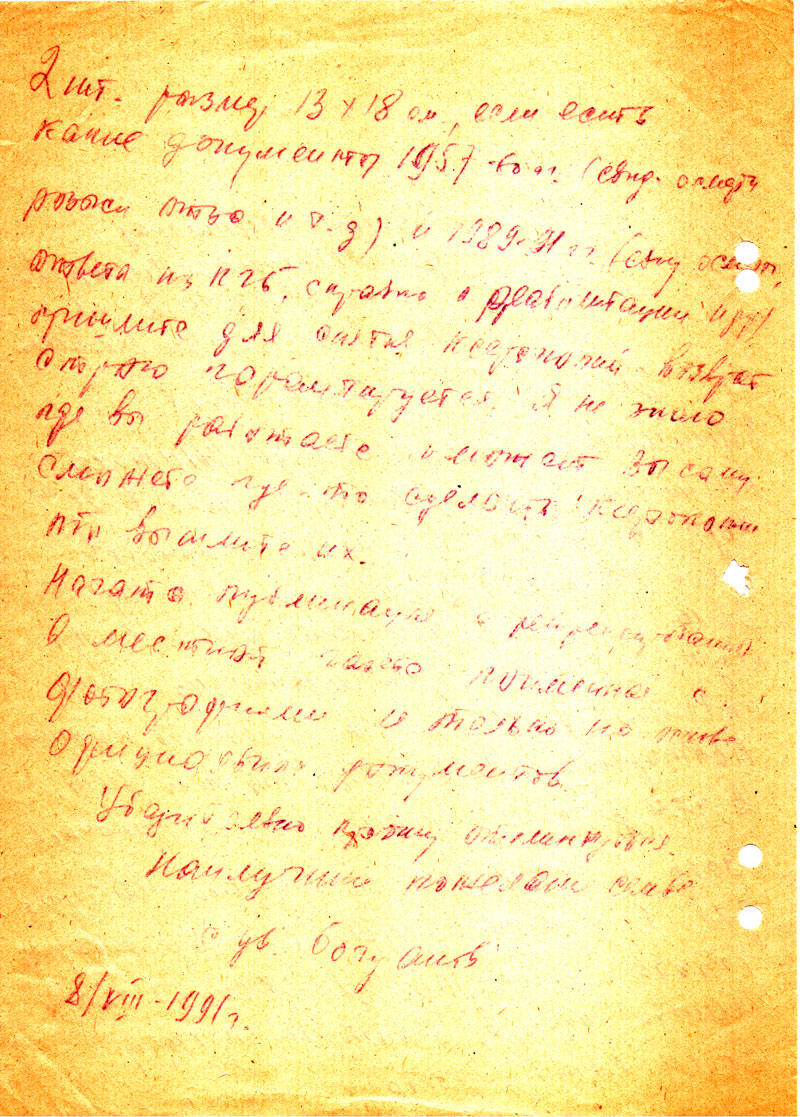 2 шт. размер 13 х 18 см, если есть
какие документы 1957-60 гг. (свид. о смерти
и т.д) и 1989-91 гг. (
ответа из КГБ, справка о реабилитации и др)
пришлите для снятия ксерокопий возврат
строго гарантируется. Я не знаю
где вы работаете и может Вы сами
сможете где-то сделать ксерокопии
то вышлите их.
Начата публикация о
в местной газете поименная с
фотографиями и только на основе
официальных документов.
Убедительно прошу откликнуться.
Наилучшие пожелания семье
с ув. Богу
8/VIII-1991г.